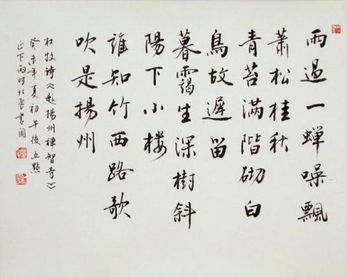 雨過一蟬噪飄
蕭松桂秋
青苔滿階砌白
鳥故遲留
暮靄生深樹斜
陽下小樓
誰知竹西路歌
吹是揚州
杜牧詩《題揚州禪智寺》
癸未年夏初午後五點
正下雨時於